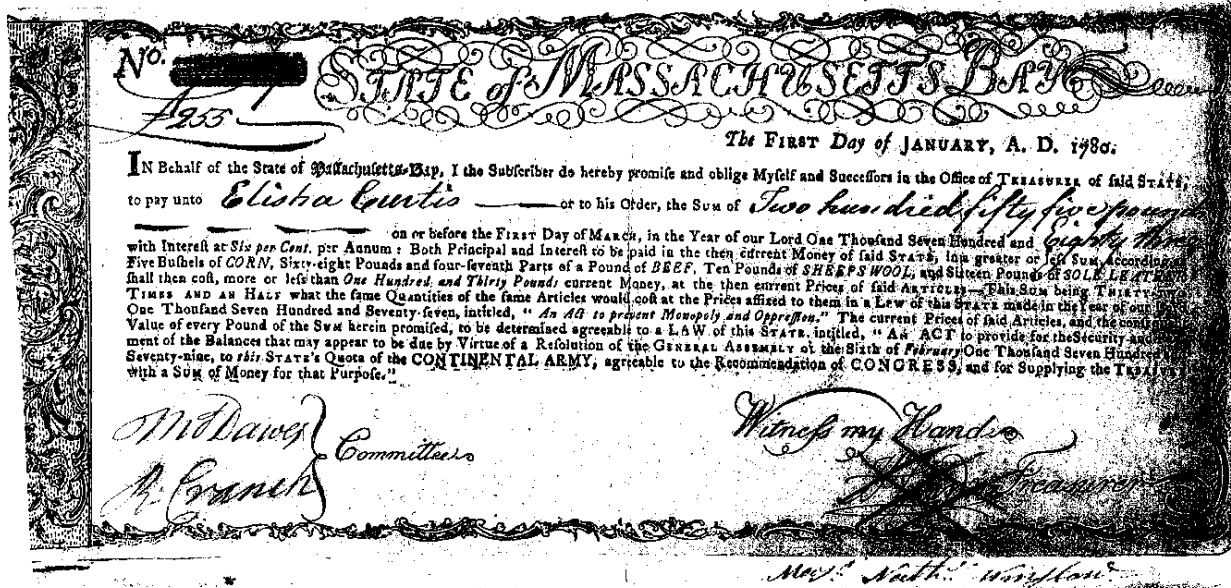 No.
STATE of MASSACHUSETTS BAY
£255
The FIRST Day of JANUARY, A. D. 1780.
IN Behalf of the State of Massachusetts-Bay, I the Subscriber do hereby promise and oblige Myself and Successors in the Office of TREASURER of said STATE,
to pay unto Elisha Curtis or to his Order, the SUM of Two hundred fifty five pound
on or before the FIRST Day of MARCH, in the Year of our Lord One Thousand Seven Hundred and Eighty three
with Interest at Six per Cent. per Annum : Both Principal and Interest to be paid in the then current Money of said STATE, in a greater or less SUM, according as
Five Bushels of CORN, Sixty-eight Pounds and four-seventh Parts of a Pound of BEEF, Ten Pounds of SHEEPS WOOL, and Sixteen Pounds of SOLE LEATHER
shall then cost, more or less than One Hundred and Thirty Pounds current Money, at the then current Prices of said ARTICLES—This SUM being THIRTY
TIMES AND AN HALF what the same Quantities of the same Articles would cost at the Prices affixed to them in a LAW of this STATE made in the Year of our
One Thousand Seven Hundred and Seventy-seven, intitled, " An Act to prevent Monopoly and Oppression." The current Prices of said Articles, and the
Value of every Pound of the SUM herein promised, to be determined agreeable to a LAW of this STATE, intitled, " An ACT to provide for the Security and
ment of the Balances that may appear to be due by Virtue of a Resolution of the GENERAL ASSEMBLY of the Sixth of February One Thousand Seven Hundred
Seventy-nine, to this STATE'S Quota of the CONTINENTAL ARMY, agreeable to the Recommendation of CONGRESS, and for Supplying the TREASURY
with a SUM of Money for that Purpose."
Witness my Hand
Dawes
R. Cranch
Committee
Treasurer